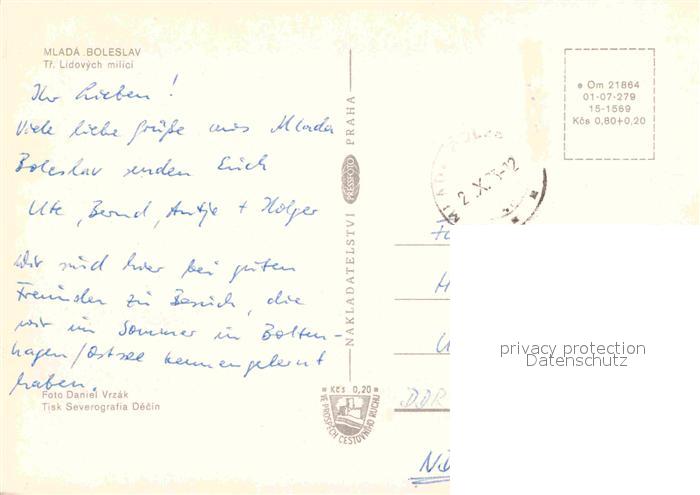 MLADÁ BOLESLAV
Tř. Lidových milicí
Ihr Lieben!
Viele liebe Grüße aus Mlada
Boleslav senden Euch
Ute, Bernd, Antje + Holger
Wir sind hier bei guten
Freunden zu Besuch, die
wir im Sommer in Bolten-
hagen/Ostsee kennengelernt
haben.
Foto Daniel Vrzák
Tisk Severografia Děčín
NAKLADATELSTVÍ PRESSFOTO PRAHA
Kčs 0,20
VE PROSPĚCH CESTOVNÍHO RUCHU
Om 21864
01-07-279
15-1569
Kčs 0,80+0,20
DDR
privacy protection
Datenschutz